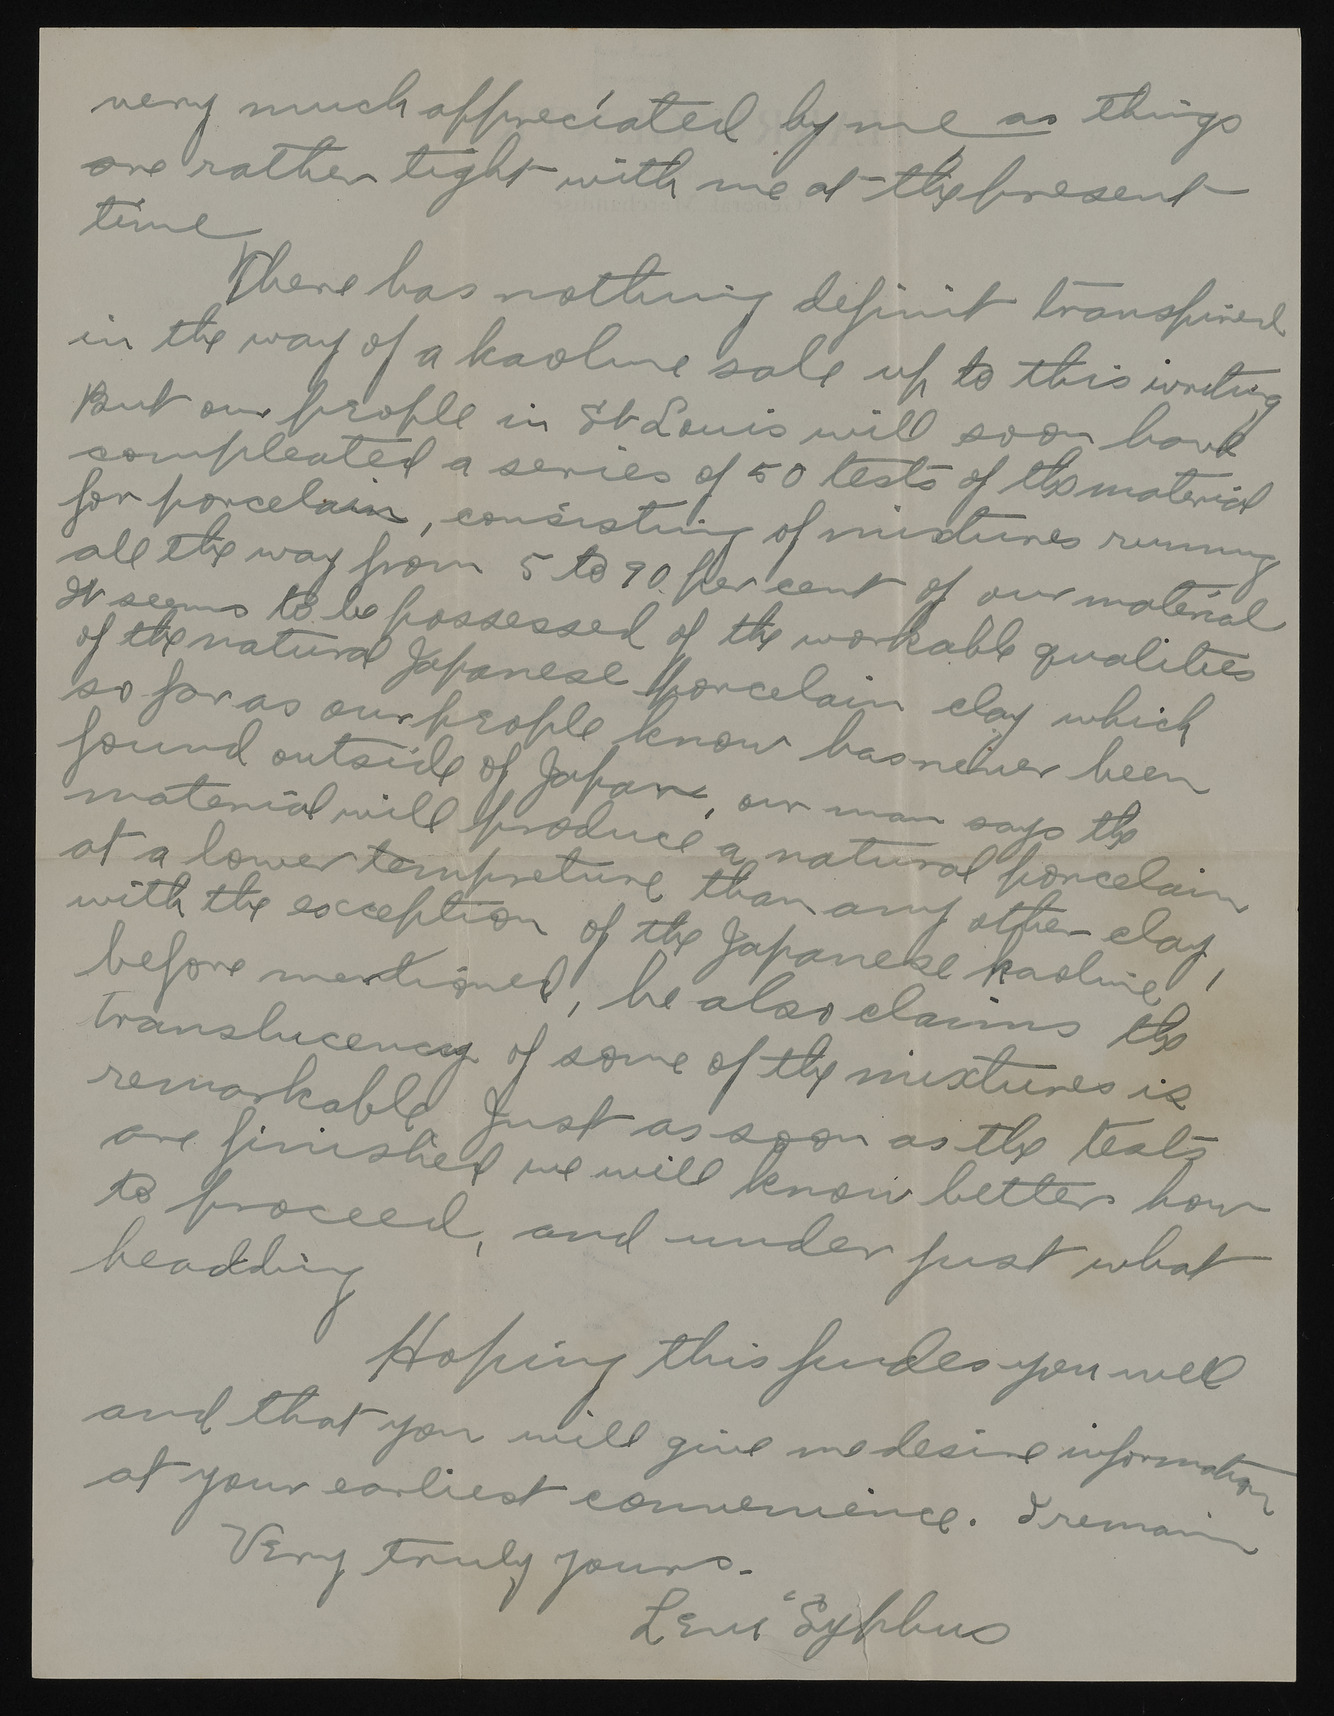 very much appreciated by me as things
are rather tight with me at the present
time
There has nothing definit transpired
in the way of a kaoline sale up to this writing
But our people in St Louis will soon have
compleated a series of 50 tests of the material
for porcelain, consisting of mixtures running
all the way from 5 to 90 per cent of our material
It seems to be possessed of the workable qualities
of the natural Japanese porcelain clay which
so far as our people know has never been
found outside of Japan, our man says the
material will produce a natural porcelain
at a lower tempreture than any other clay,
with the exception of the Japanese kaoline
before mentioned, he also claims the
translucency of some of the mixtures is
remarkable Just as soon as the tests
are finished we will know better how
to proceed, and under just what
headding
Hoping this findes you well
and that you will give me desire information
at your earliest convenience. I remain
Very truly yours.
Levi Syphus